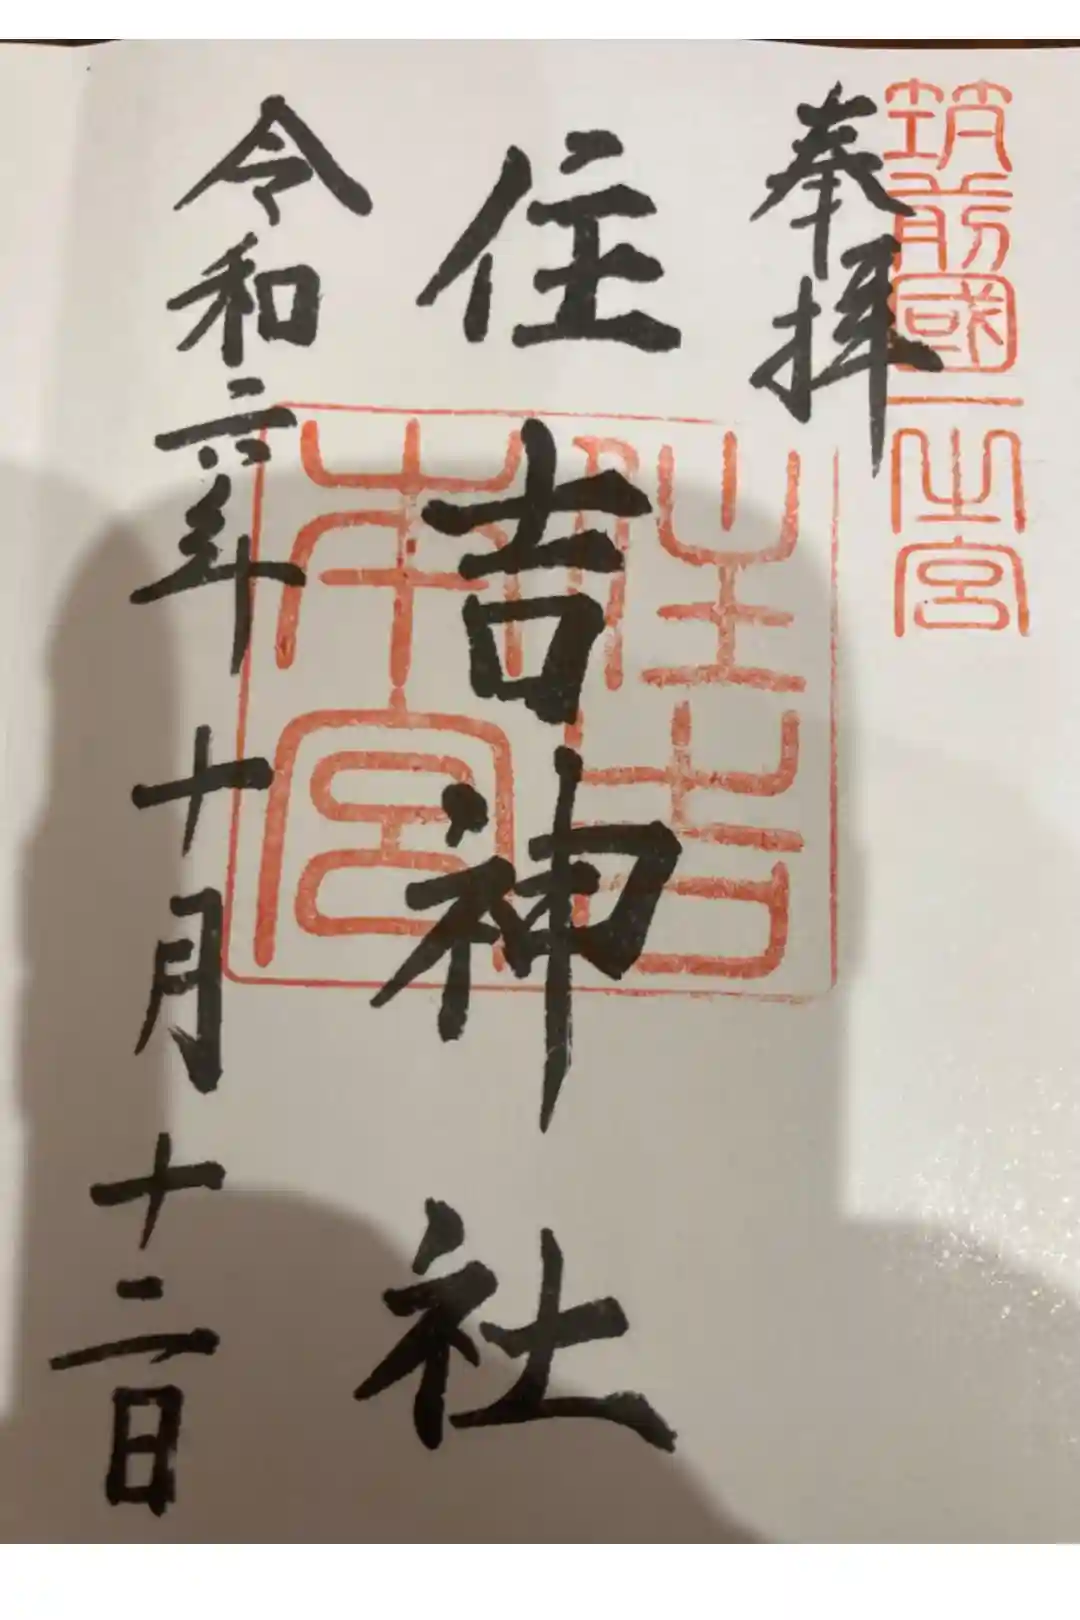 筑前國一之宮
奉拝
住吉神社
住吉
本宮
令和六年十月十二日